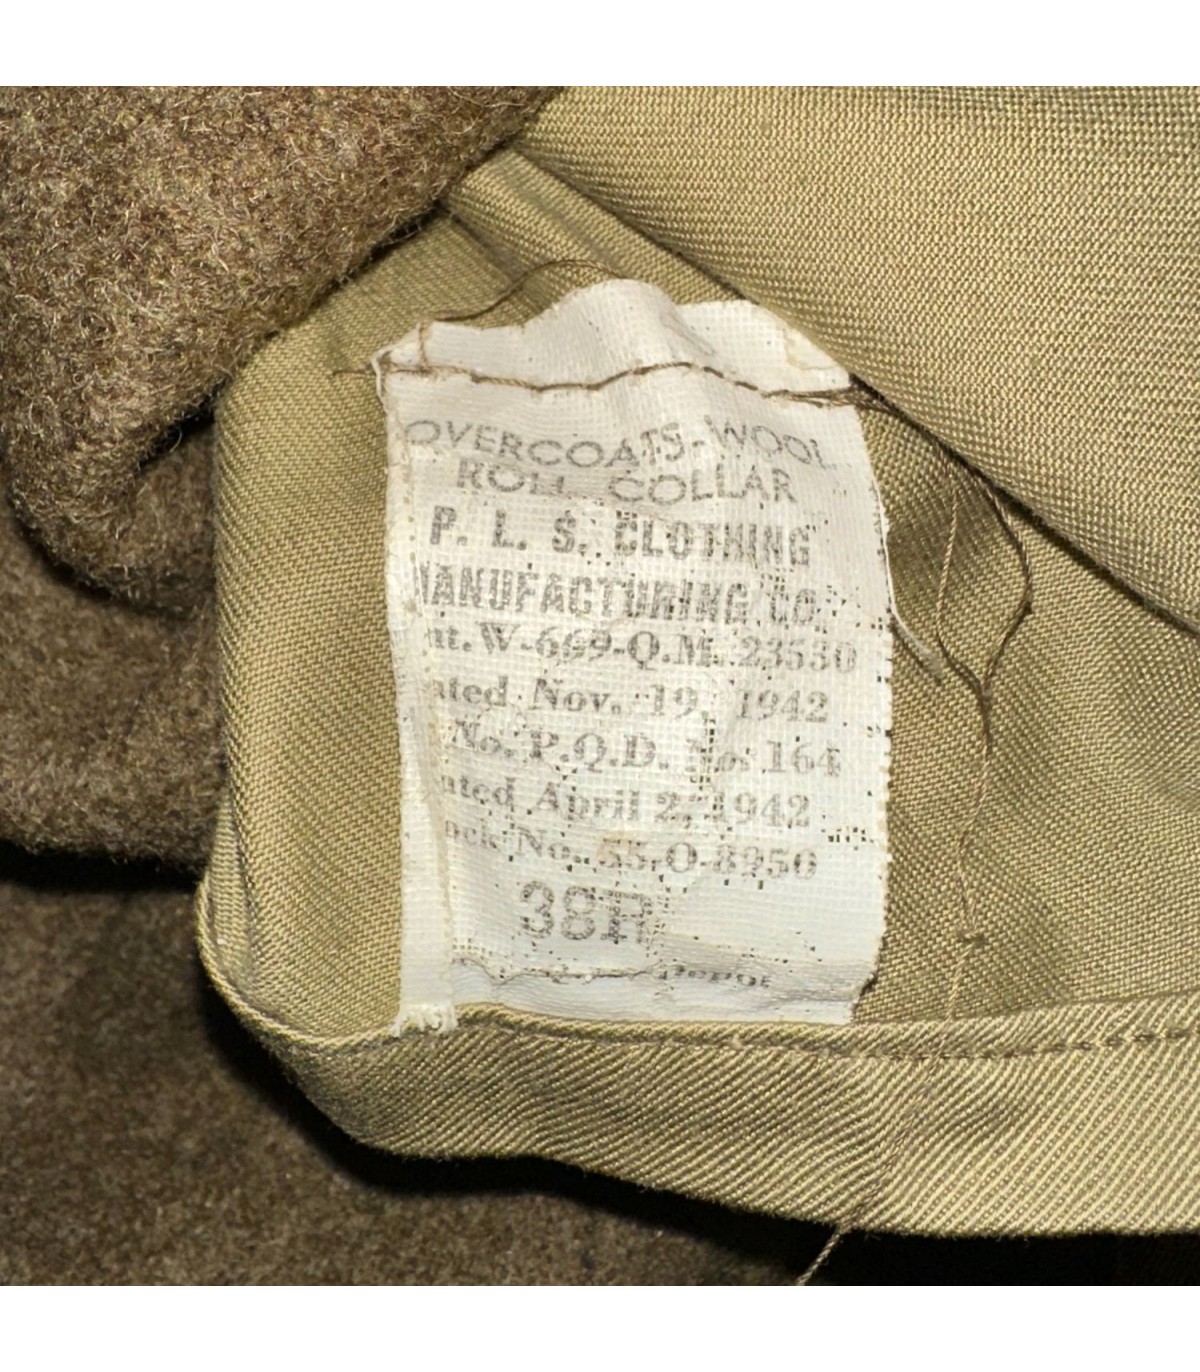 OVERCOATS-WOOL
ROLL COLLAR
P. L. S. CLOTHING
MANUFACTURING CO.
nt. W-669-Q.M. 23530
ated Nov. 19, 1942
No. P.Q.D. No. 164
ated April 2, 1942
ock No. 55-O-8950
38R
Depot